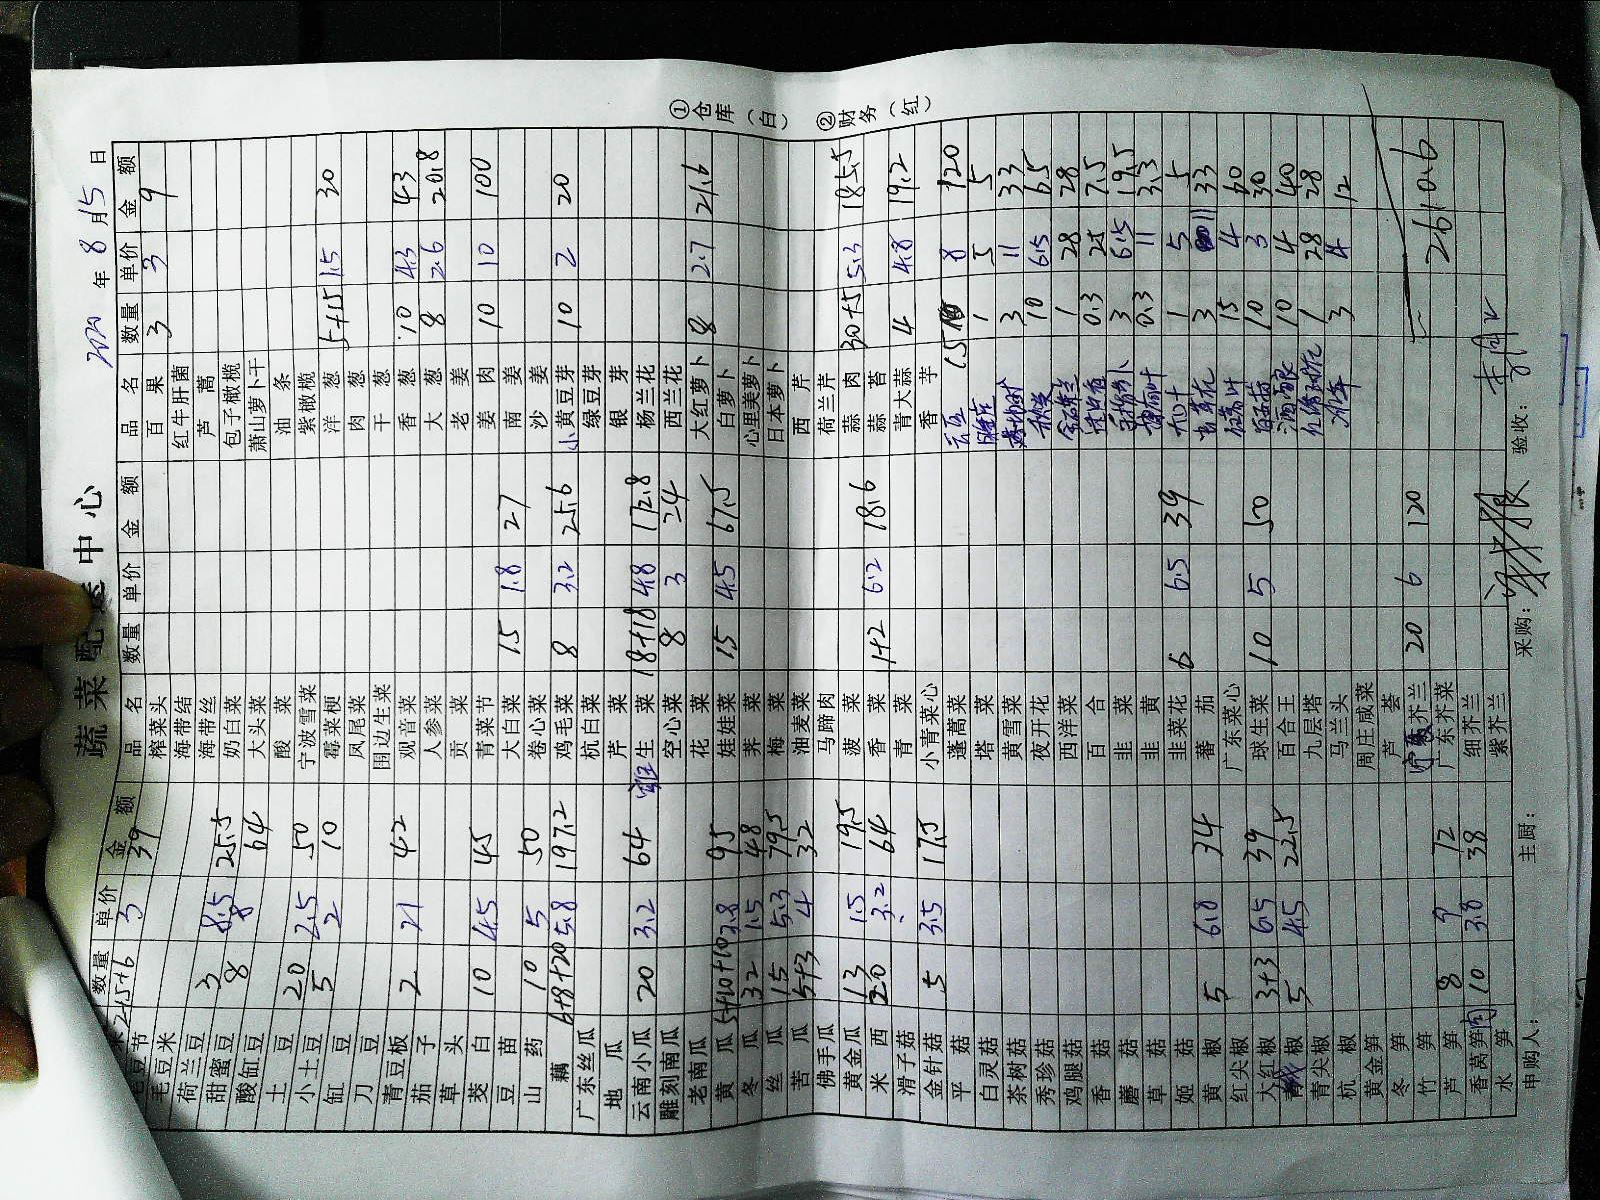 蔬菜配送中心
2020 年 8 月 15 日
品名 数量 单价 金额 品名 数量 单价 金额 品名 数量 单价 金额
毛豆节 2+5+6 3 39 榨菜头 百果 3 3 9
毛豆米 海带结 红牛肝菌
荷兰豆 海带丝 芦蒿
甜蜜豆 3 8.5 25.5 奶白菜 包子橄榄
酸豇豆 8 8 64 大头菜 萧山萝卜干
土豆 酸菜 油条
小土豆 20 2.5 50 宁波雪菜 紫橄榄
豇豆 5 2 10 霉菜梗 洋葱 5+15 1.5 30
刀豆 凤尾菜 肉葱
青豆板 围边生菜 干葱
茄子 2 21 42 观音菜 香葱 10 4.3 43
草头 人参菜 大葱 8 2.6 20.8
贡菜 老姜
茭白 10 4.5 45 青菜节 姜肉 10 10 100
豆苗 大白菜 15 1.8 27 南姜
山药 10 5 50 卷心菜 沙姜
藕 6+8+20 5.8 197.2 鸡毛菜 8 3.2 25.6 小黄豆芽 10 2 20
广东丝瓜 杭白菜 绿豆芽
地瓜 芹菜 银芽
云南小瓜 20 3.2 64 生菜 18+18 4.8 172.8 杨兰花
雕刻南瓜 空心菜 8 3 24 西兰花
老南瓜 花菜 大红萝卜 8 2.7 21.6
黄瓜 5+10+10 3.8 95 娃娃菜 15 4.5 67.5 白萝卜
冬瓜 32 1.5 48 荠菜 心里美萝卜
丝瓜 15 5.3 79.5 梅菜 日本萝卜
苦瓜 5+3 4 32 油麦菜 西芹
佛手瓜 马蹄肉 荷兰芹
黄金瓜 13 1.5 19.5 菠菜 蒜肉 30+5 5.3 185.5
米西 20 3.2 64 香菜 1+2 6.2 18.6 蒜苔
滑子菇 青菜 青大蒜 4 4.8 19.2
金针菇 5 3.5 17.5 小青菜心 香芋
平菇 蓬蒿菜 芸豆 15 8 120
白灵菇 塔菜 1 5 5
茶树菇 黄雪菜 3 11 33
秀珍菇 夜开花 秋葵 10 6.5 65
鸡腿菇 西洋菜 1 28 28
香菇 百合 0.3 25 7.5
蘑菇 韭菜 3 6.5 19.5
草菇 韭黄 0.3 11 3.3
姬菇 韭菜花 6 6.5 39 1 5 5
黄椒 5 6.8 34 蕃茄 3 11 33
红尖椒 广东菜心 15 4 60
大红椒 3+3 6.5 39 球生菜 10 5 50 10 3 30
青椒 5 4.5 22.5 百合王 10 4 40
青尖椒 九层塔 1 28 28
杭椒 马兰头 3 4 12
黄金笋 周庄咸菜
冬笋 芦荟
竹笋 芥兰 20 6 120
芦笋 8 9 72 广东芥菜 2610.6
香莴笋 10 3.8 38 细芥兰
水笋 紫芥兰
申购人： 主厨： 采购： 验收：
①仓库（白） ②财务（红）